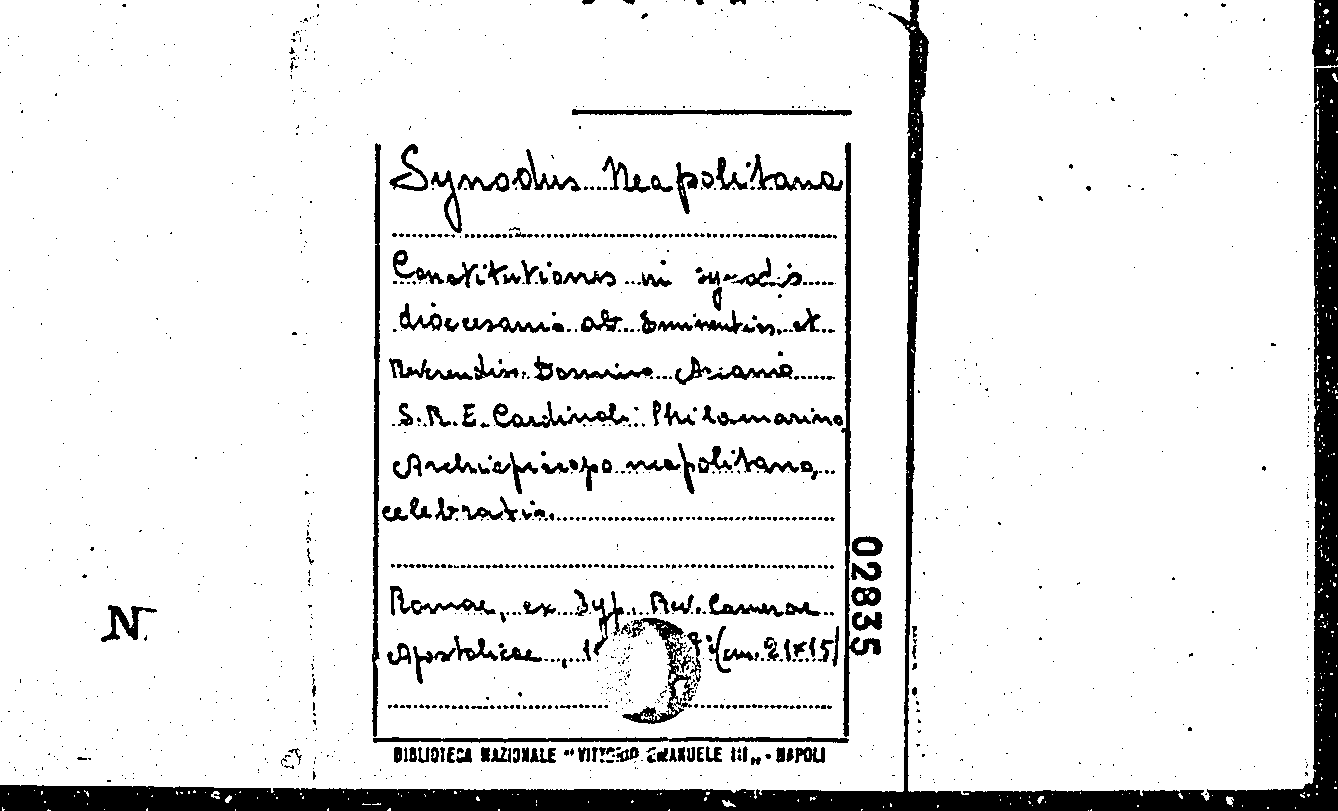 Synodus Neapolitana
Constitutiones in synodis
diocesanis ab Eminentiss. et
Reverendiss. Domino Ascanio
S.R.E. Cardinali Philamarino
Archiepiscopo neapolitano,
celebratis.
Romae, ex Typ. Rev. Camerae
Apostolicae, (cm. 21x15)
BIBLIOTECA NAZIONALE "VITTORIO EMANUELE III" - NAPOLI
02835
N